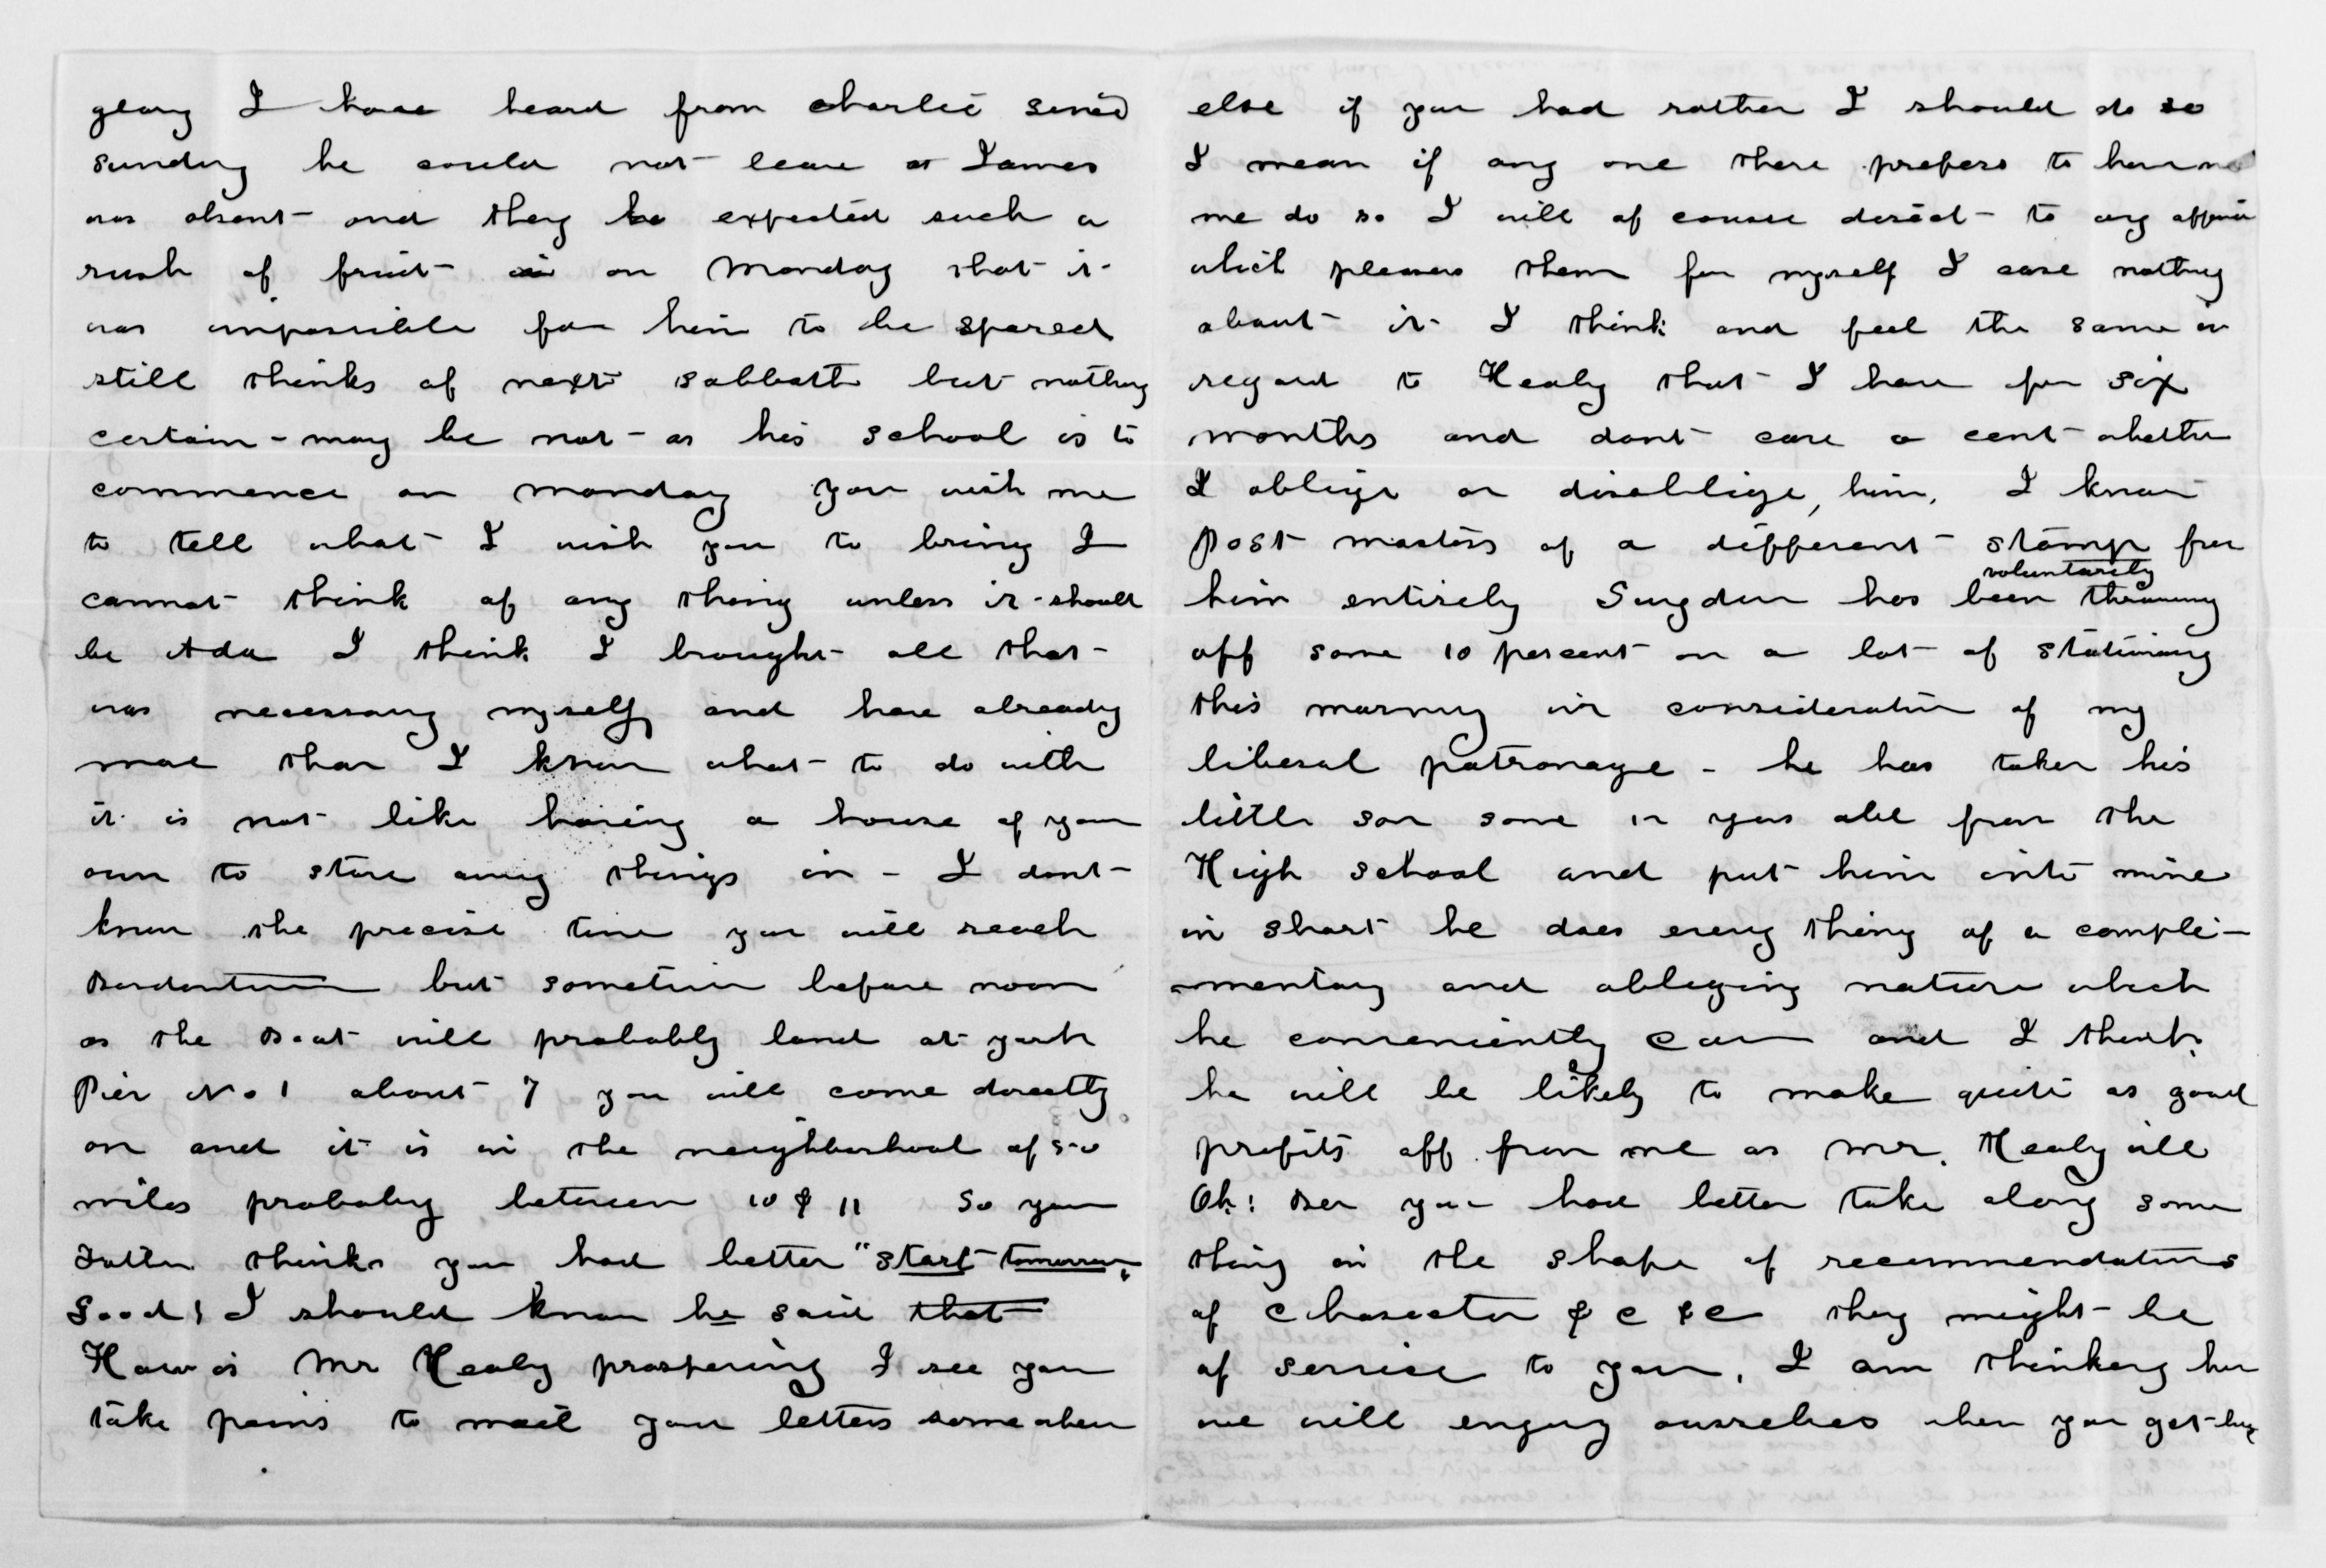 glory I have heard from Charlie since
Sunday he could not leave as James
was absent and they ha expected such a
rush of fruit on Monday that it
was impossible for him to be spared
still thinks of next Sabbath but nothing
certain - may be not - as his School is to
commence on Monday you wish me
to tell what I wish you to bring I
cannot think of any thing unless it should
be Ada I think I brought all that
was necessary myself and have already
more than I know what to do with
it is not like having a house of your
own to store away things in - I dont
know the precise time you will reach
Bordentown but sometime before noon
as the Boat will probably land at
Pier No 1 about 7 you will come directly
on and it is in the neighborhood of 50
miles probably between 10 & 11 So your
Father thinks you had better "start tomorrow"
Good! I should know he said that
How is Mr Healy prospering I see you
take pains to mail your letters some where
else if you had rather I should do so
I mean if any one there prefers to have
me do so I will of course direct to any office
which pleases them for myself I care nothing
about it I think and feel the same in
regard to Healy that I have for six
months and dont care a cent whether
I oblige or disoblige, him. I know
post masters of a different stamp from
voluntarily
him entirely Sugden has been throwing
off some 10 percent on a lot of stationary
this morning in consideration of my
liberal patronage - he has taken his
little son some 12 years old from the
High School and put him into mine
in short he does every thing of a compli-
mentary and obliging nature which
he conveniently can and I think
he will be likely to make quite as good
profits off from me as Mr. Healy will
Oh! Ben you had better take along some
thing in the shape of recommendations
of character & c & c they might be
of service to you, I am thinking how
we will enjoy ourselves when you get here